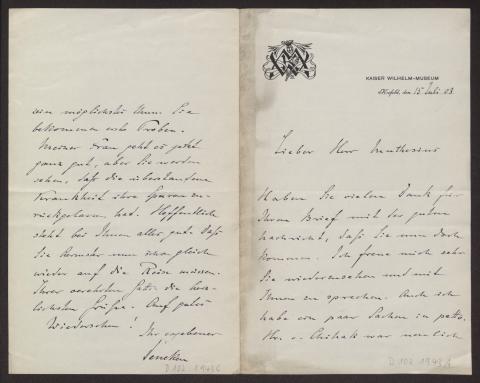 KAISER WILHELM-MUSEUM
Krefeld, den 15 Juli 03.
Lieber Herr Muthesius
Haben Sie vielen Dank für
Ihren Brief mit der guten
Nachricht, daß Sie nun doch
kommen. Ich freue mich sehr
Sie wiederzusehen und mit
Ihnen zu sprechen. Auch ich
habe ein paar Sachen in petto.
Hr. v. Chihak war neulich
D 102-1948 a
möglichst Ihnen. Sie
bekommen erste Proben.
Meiner Frau geht es jetzt
ganz gut, aber Sie werden
sehen, daß die überstandene
Krankheit ihre Spuren zu-
rückgelassen hat. Hoffentlich
steht bei Ihnen alles gut, daß
Sie beruhigt nun
wieder auf die Reise müssen.
Ihrer verehrten Gattin die herz-
lichsten Grüße. Auf gutes
Wiedersehen!
Ihr ergebener
Deneken
D 102-1948 b